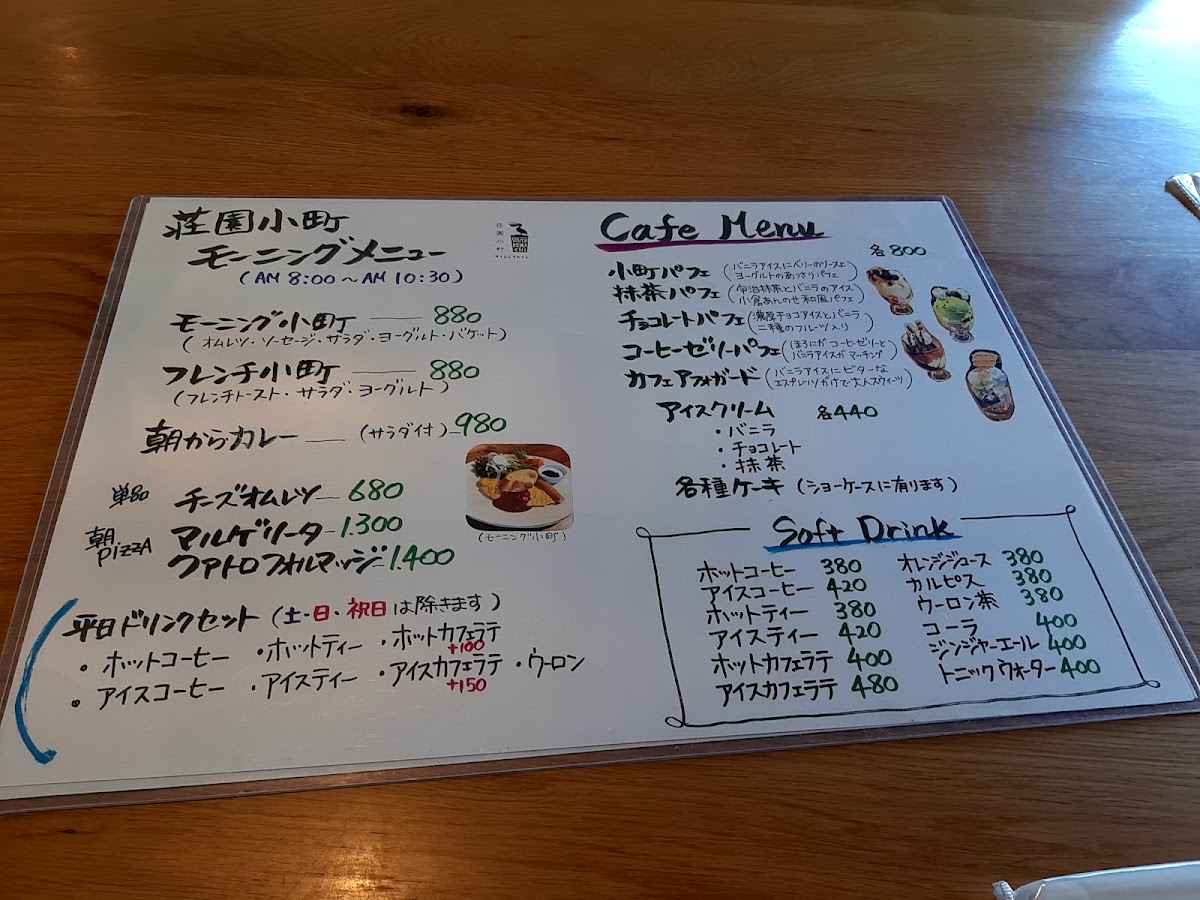 荘園小町
モーニングメニュー
(AM 8:00~AM 10:30)
モーニング小町 — 880
(オムレツ・ソーセージ・サラダ・ヨーグルト・バケット)
フレンチ小町 — 880
(フレンチトースト・サラダ・ヨーグルト)
朝からカレー — (サラダ付) — 980
単品 チーズオムレツ — 680
朝PIZZA マルゲリータ — 1.300
クアトロフォルマッジ — 1.400
(モーニング小町)
平日ドリンクセット (土・日・祝日は除きます)
・ホットコーヒー ・ホットティー ・ホットカフェラテ +100
・アイスコーヒー ・アイスティー ・アイスカフェラテ +150 ・ウーロン
荘園小町
Cafe Menu
各800
小町パフェ (バニラアイスにベリーのソースと
ヨーグルトのあっさりパフェ)
抹茶パフェ (宇治抹茶とバニラのアイス
小倉あんのせ和風パフェ)
チョコレートパフェ (濃厚チョコアイスとバニラ
二種のフルーツ入り)
コーヒーゼリーパフェ (ほろにがコーヒーゼリーと
バニラアイスがマッチング)
カフェアフォガード (バニラアイスにビターな
エスプレッソがけで大人スウィーツ)
アイスクリーム 各440
・バニラ
・チョコレート
・抹茶
各種ケーキ (ショーケースに有ります)
Soft Drink
ホットコーヒー 380
アイスコーヒー 420
ホットティー 380
アイスティー 420
ホットカフェラテ 400
アイスカフェラテ 480
オレンジジュース 380
カルピス 380
ウーロン茶 380
コーラ 400
ジンジャーエール 400
トニックウォーター 400